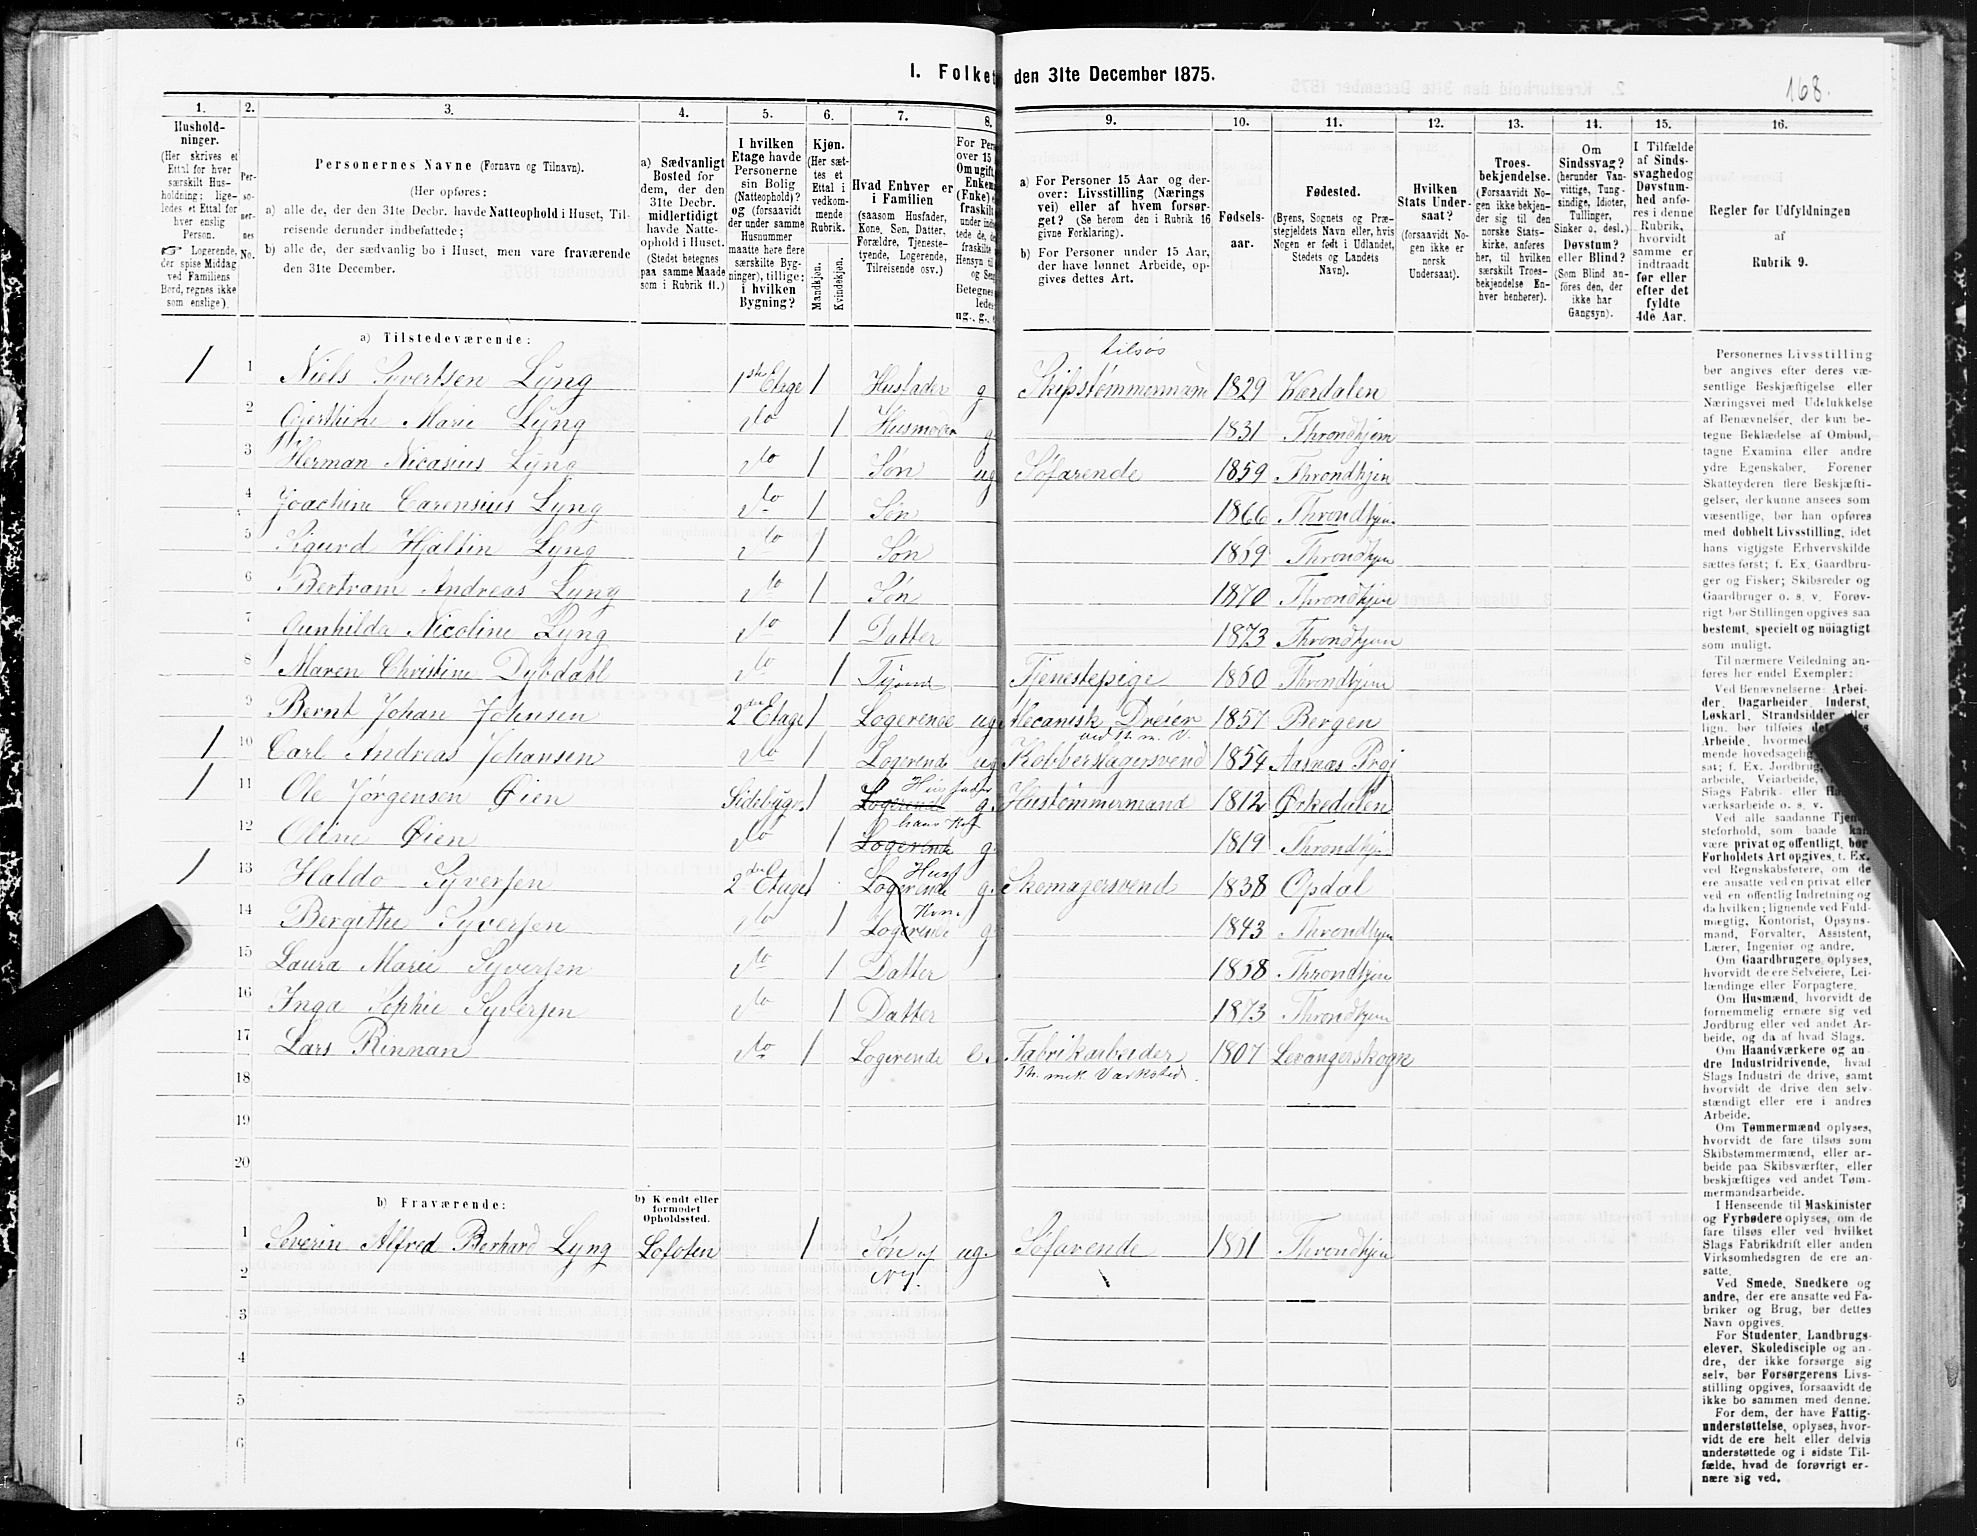 I. Folket den 31te December 1875.
168.
1.
Hushold-
ninger.
(Her skrives et
Ettal for hver
særskilt Hus-
holdning; lige-
ledes et Ettal for
hver enslig
Person.
☞ Logerende,
der spise Middag
ved Familiens
Bord, regnes ikke
som enslige).
2.
Per-
so-
ner-
nes
No.
3.
Personernes Navne (Fornavn og Tilnavn).
(Her opføres:
a) alle de, der den 31te Decbr. havde Natteophold i Huset, Til-
reisende derunder indbefattede;
b) alle de, der sædvanlig bo i Huset, men vare fraværende
den 31te December.
4.
a) Sædvanligt
Bosted for
dem, der den
31te Decbr.
midlertidigt
havde Natte-
ophold i Huset.
(Stedet betegnes
paa samme Maade
som i Rubrik 11.)
5.
I hvilken
Etage havde
Personerne
sin Bolig
(Natteophold)?
og (forsaavidt
der under samme
Husnummer
maatte høre flere
særskilte Byg-
ninger), tillige:
i hvilken
Bygning?
6.
Kjøn.
(Her sæt-
tes et
Ettal i
vedkom-
mende
Rubrik.
Mandkjøn.
Kvindekjøn.
7.
Hvad Enhver er
i Familien
(saasom Husfader,
Kone, Søn, Datter,
Forældre, Tjeneste-
tyende, Logerende,
Tilreisende osv.)
8.
For Pers
over 15
Om ugift,
Enkem
(Enke) e
fraskilt
under indt
tede de, de
fraskilte
Hensyn til
og Sen
Betegnes
ledes
ug., g., e
9.
a) For Personer 15 Aar og der-
over: Livsstilling (Nærings
vei) eller af hvem forsør-
get? (Se herom den i Rubrik 16
givne Forklaring).
b) For Personer under 15 Aar,
der have lønnet Arbeide, op-
gives dettes Art.
10.
Fødsels-
aar.
11.
Fødested.
(Byens, Sognets og Præ-
stegjeldets Navn eller, hvis
Nogen er født i Udlandet,
Stedets og Landets
Navn).
12.
Hvilken
Stats Under-
saat?
(forsaavidt No-
gen ikke er
norsk
Undersaat).
13.
Troes-
bekjendelse.
(Forsaavidt No-
gen ikke bekjen-
der sig til den
norske Stats-
kirke, anføres
her, til hvilken
særskilt Troes-
bekjendelse En-
hver henhører).
14.
Om
Sindssvag?
(herunder Van-
vittige, Tung-
sindige, Idioter,
Tullinger,
Sinker o. desl.)
Døvstum?
eller Blind?
(Som Blind an-
føres den, der
ikke har
Gangsyn).
15.
I Tilfælde
af Sinds-
svaghed og
Døvstum-
hed anfø-
res i denne
Rubrik,
hvorvidt
samme er
indtraadt
før eller
efter det
fyldte
4de Aar.
16.
Regler for Udfyldningen
af
Rubrik 9.
a) Tilstedeværende:
tilsøs
1 1 Niels Syvertsen Lyng 1ste Etage 1 Husfader g Skibstømmermand 1829 Værdalen
2 Gjerthine Marie Lyng do 1 Husmoder g 1831 Throndhjem
3 Herman Nicasius Lyng do 1 Søn ug Søfarende 1859 Throndhjem
4 Joachim Carensius Lyng do 1 Søn 1866 Throndhjem
5 Sigurd Hjaltin Lyng do 1 Søn 1869 Throndhjem
6 Bertram Andreas Lyng do 1 Søn 1870 Throndhjem
7 Gunhilda Nicoline Lyng do 1 Datter 1873 Throndhjem
8 Maren Christine Dybdahl do 1 Tjende Tjenestepige 1860 Throndhjem
9 Bernt Johan Johnsen 2den Etage 1 Logerende ug. Mecanisk Dreier 1857 Bergen
ved Th. m. V.
1 10 Carl Andreas Johansen do 1 Logerende ug Kobberslagersvend 1854 Aasnæs Prgj
Husfader
1 11 Ole Jørgensen Øien Sidebygn. 1 Logerende g. Hustømmermand 1812 Ørkedalen
hans Kof
12 Oline Øien do 1 Logerende g. 1819 Throndhj
Husf
1 13 Haldo Syversen 2den Etage 1 Logerende g. Skomagersvend 1838 Opdal
Kone
14 Bergithe Syversen do 1 Logerende g. 1843 Throndhjem
15 Laura Marie Syversen do 1 Datter 1868 Throndhjem
16 Inga Sophie Syversen do 1 Datter 1873 Throndhjem
17 Lars Rinnan do 1 Logerende e. Fabrikarbeider 1807 Levangerskogn
18 Th. mek. Værksted.
19
20
b) Fraværende:
b) Kjendt eller
formodet
Opholdssted.
1 Severin Alfred Berhard Lyng Lofoten 1 Søn af ug. Søfarende 1861 Throndhjem
2 No 1.
3
4
5
6
Personernes Livsstilling
bør angives efter deres væ-
sentlige Beskjæftigelse eller
Næringsvei med Udelukkelse
af Benævnelser, der kun be-
tegne Beklædelse af Ombud,
tagne Examina eller andre
ydre Egenskaber. Forener
Skatteyderen flere Beskjæfti-
gelser, der kunne ansees som
væsentlige, bør han opføres
med dobbelt Livsstilling, idet
hans vigtigste Erhvervskilde
sættes først; f. Ex. Gaardbru-
ger og Fisker; Skibsreder og
Gaardbruger o. s. v. Forøv-
rigt bør Stillingen opgives saa
bestemt, specielt og nøiagtigt
som muligt.
Til nærmere Veiledning an-
føres her endel Exempler:
Ved Benævnelserne: Arbei-
der, Dagarbeider, Inderst,
Løskarl, Strandsidder eller
lign. bør tilføies det
Arbeide, hvormed
mende hovedsagelig
sat; f. Ex. Jordbrug
arbeide, Veiarbeide,
Slags Fabrik- eller
værksarbeide o. s. v.
Ved alle saadanne Tjene-
steforhold, som baade kan
være privat og offentligt, bør
Forholdets Art opgives, f. Ex.
ved Regnskabsførere, om de
ere ansatte ved en privat eller
ved en offentlig Indretning og
da hvilken; lignende ved Fuld-
mægtig, Kontorist, Opsyns-
mand, Forvalter, Assistent,
Lærer, Ingeniør og andre.
Om Gaardbrugere oplyses,
hvorvidt de ere Selveiere, Lei-
lændinge eller Forpagtere.
Om Husmænd, hvorvidt de
fornemmelig ernære sig ved
Jordbrug eller ved andet Ar-
beide, og da af hvad Slags.
Om Haandværkere og an-
dre Industridrivende, hvad
Slags Industri de drive, samt
hvorvidt de drive den selv-
stændigt eller ere i andres
Arbeide.
Om Tømmermænd oplyses,
hvorvidt de fare tilsøs som
Skibstømmermænd, eller ar-
beide paa Skibsværfter, eller
beskjæftiges ved andet Tøm-
mermandsarbeide.
I Henseende til Maskinister
og Fyrbødere oplyses, om de
fare tilsøs eller ved hvilket
Slags Fabrikdrift eller anden
Virksomhedsgren de ere an-
satte.
Ved Smede, Snedkere og
andre, der ere ansatte ved Fa-
briker og Brug, bør dettes
Navn opgives.
For Studenter, Landbrugs-
elever, Skoledisciple og an-
dre, der ikke forsørge sig
selv, bør Forsørgerens Livs-
stilling opgives, forsaavidt de
ikke bo sammen med denne.
For dem, der have Fattig-
understøttelse, oplyses, hvor-
vidt de ere helt eller delvis
understøttede og i sidste Til-
fælde, hvad de forøvrigt er-
nære sig ved.